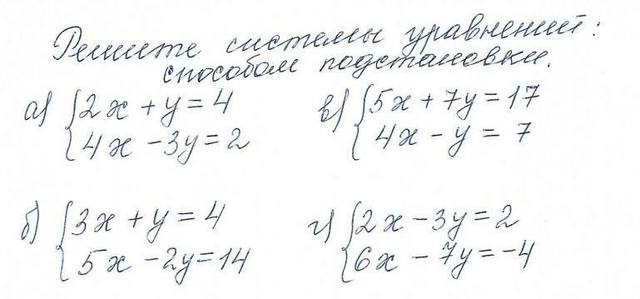 Решите системы уравнений:
способом подстановки.
а) {2x + y = 4
4x - 3y = 2
в) {5x + 7y = 17
4x - y = 7
б) {3x + y = 4
5x - 2y = 14
г) {2x - 3y = 2
6x - 7y = -4